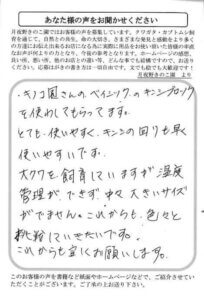 あなた様の声をお聞かせください
月夜野きのこ園ではお客様の声を募集しています。クワガタ・カブトムシ飼
育を通じて、自然との共生、命の大切さ、さまざまな発見と感動をより多く
の方達にお伝え出来るお店になる為に実際に商品をお使い頂いた皆様の率直
なお声が何よりの力となり、今後の参考になります。ホームページの感想、
良い所、悪い所、他のお店との違い等、どんな事でも結構ですので、お送り
ください。応募はがきの書き方は一切自由です。文でも絵でも大歓迎です！
月夜野きのこ園 より
キノコ園さんのベイシックのキンブロック
を使わしてもらってます。
とても、使いやすく、キンの回りも早く
使いやすいです。
大クワを飼育していますが温度
管理ができず、中々大きいサイズ
がでません。これからも、色々と
挑戦していきたいです。
これからも宜くお願いします。
このお客様の声を書籍など紙面やホームページなどで、ご紹介させてい
ただくことがございます。ご了承の上お送り下さい。